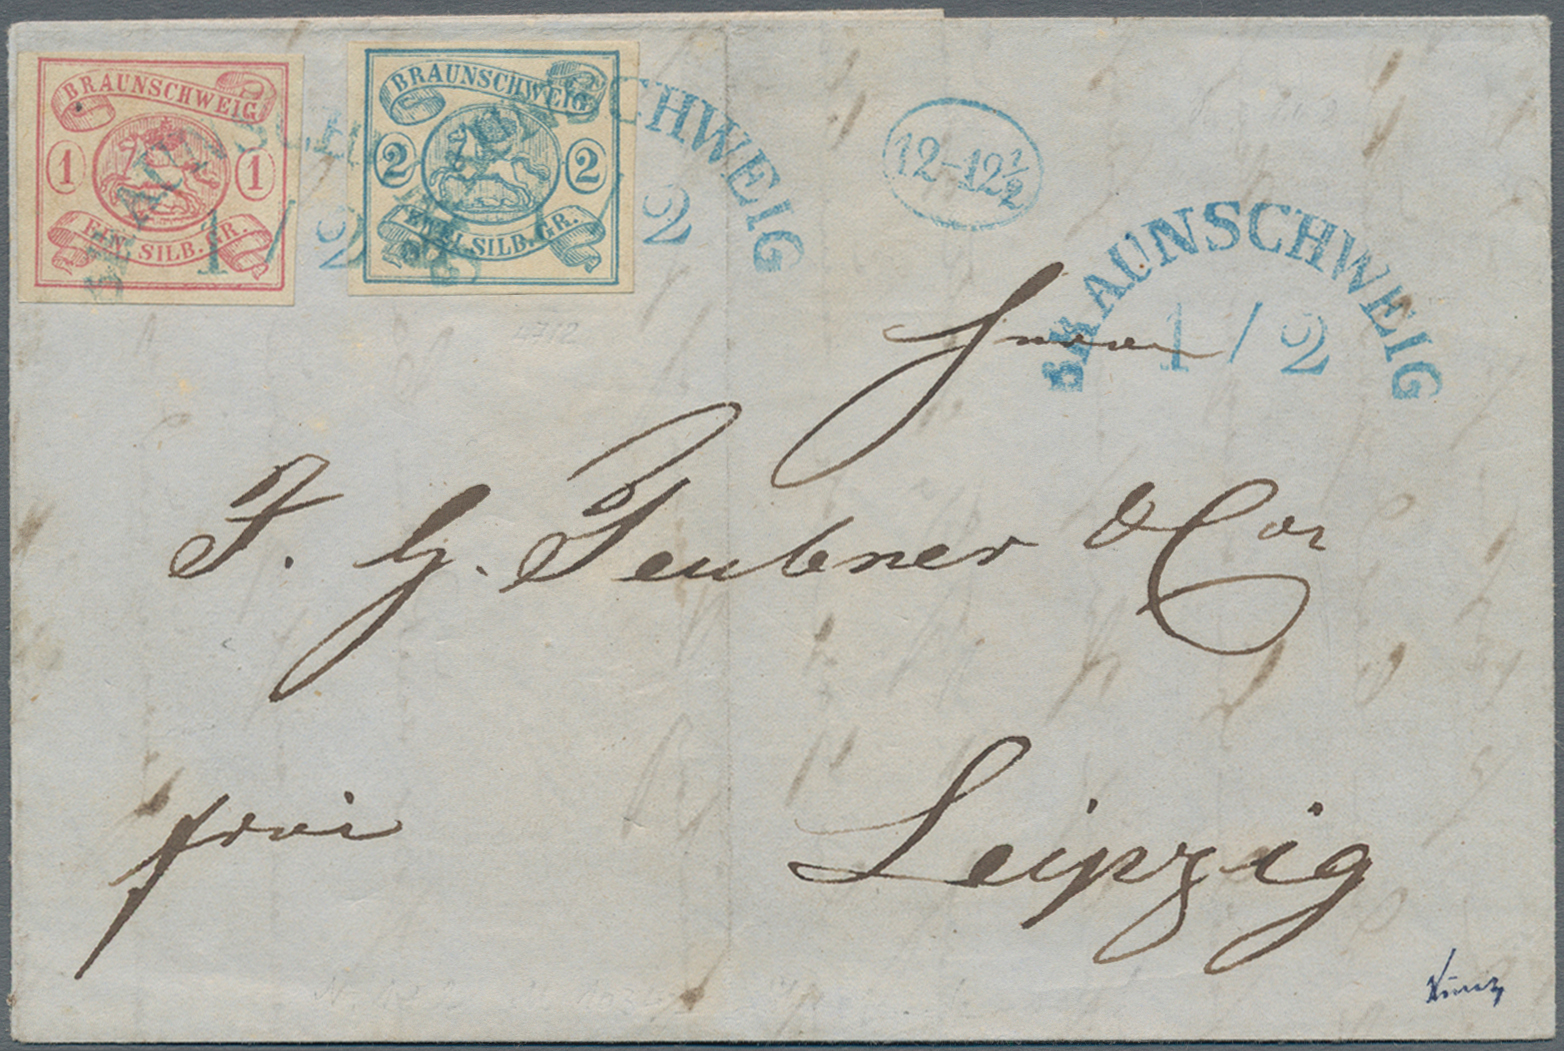 BRAUNSCHWEIG
1 1
EIN. SILB. GR.
BRAUNSCHWEIG
2 2
ZWEI. SILB. GR.
BRAUNSCHWEIG
1/2
BRAUNSCHWEIG
1/2
12-12½
BRAUNSCHWEIG
1/2
Herren
F. G. Teubner & Co
frei
Leipzig
4712